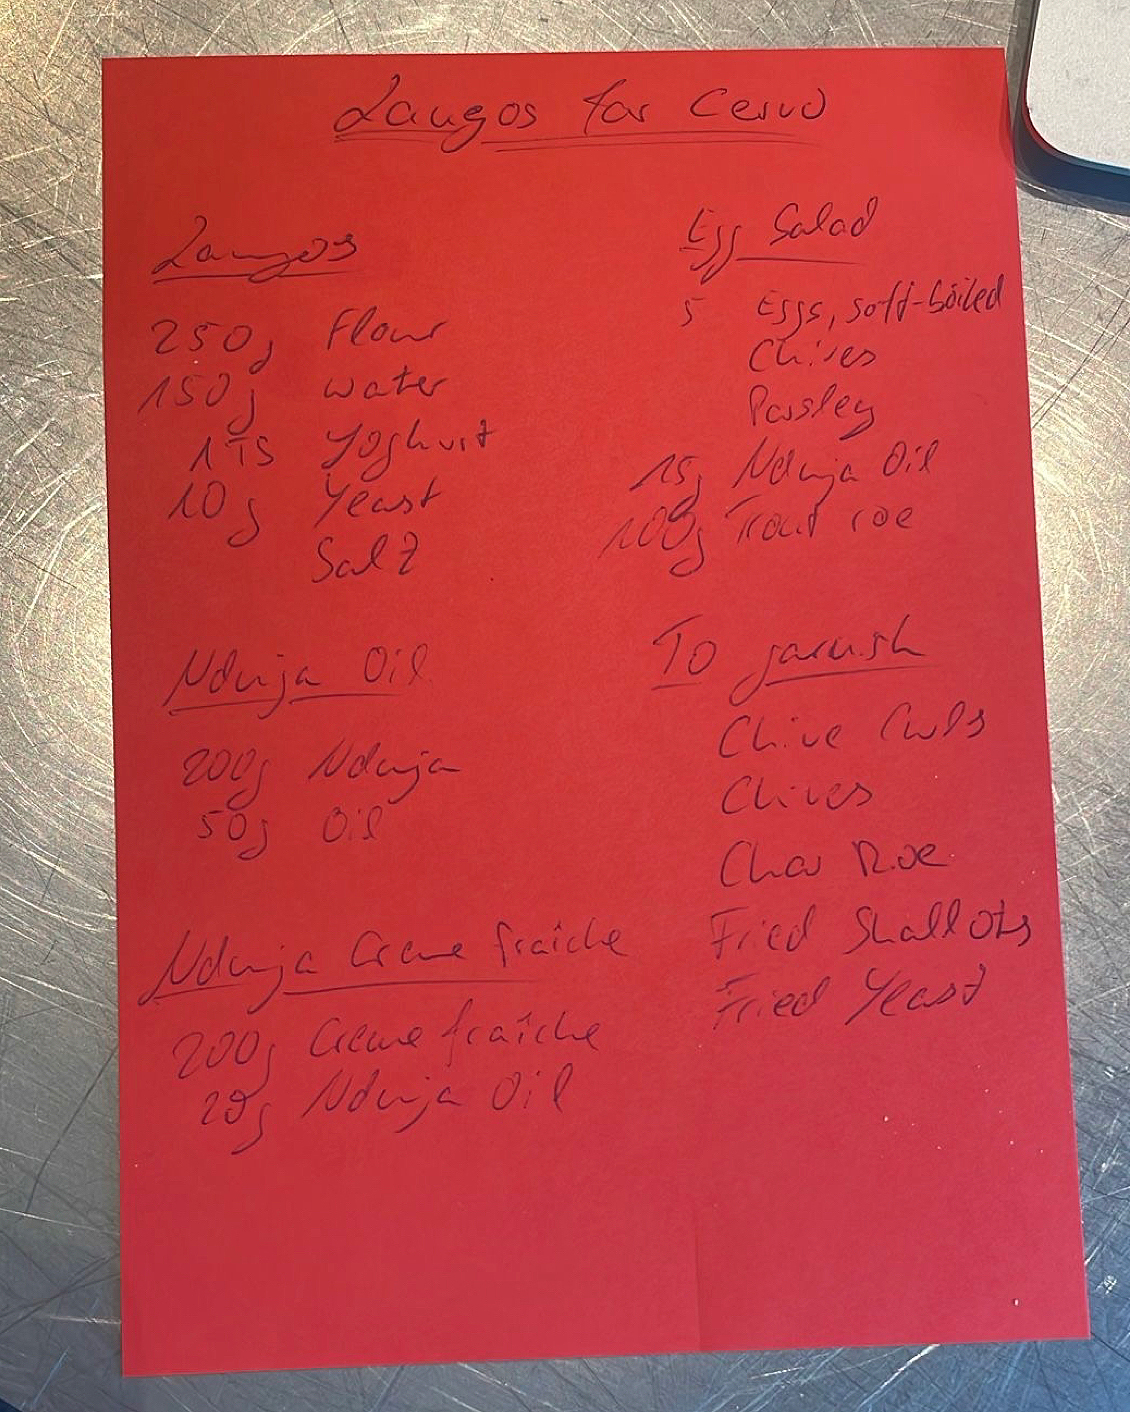 Langos for Cervo
Langos
250g Flour
150g water
1 TS Yoghurt
10g Yeast
Salt
Nduja Oil
200g Nduja
50g Oil
Nduja Creme fraîche
200g Creme fraîche
20g Nduja Oil
Egg Salad
5 Eggs, soft-boiled
Chives
Parsley
15g Nduja Oil
100g Trout roe
To garnish
Chive Curls
Chives
Char Roe
Fried Shallots
Fried Yeast